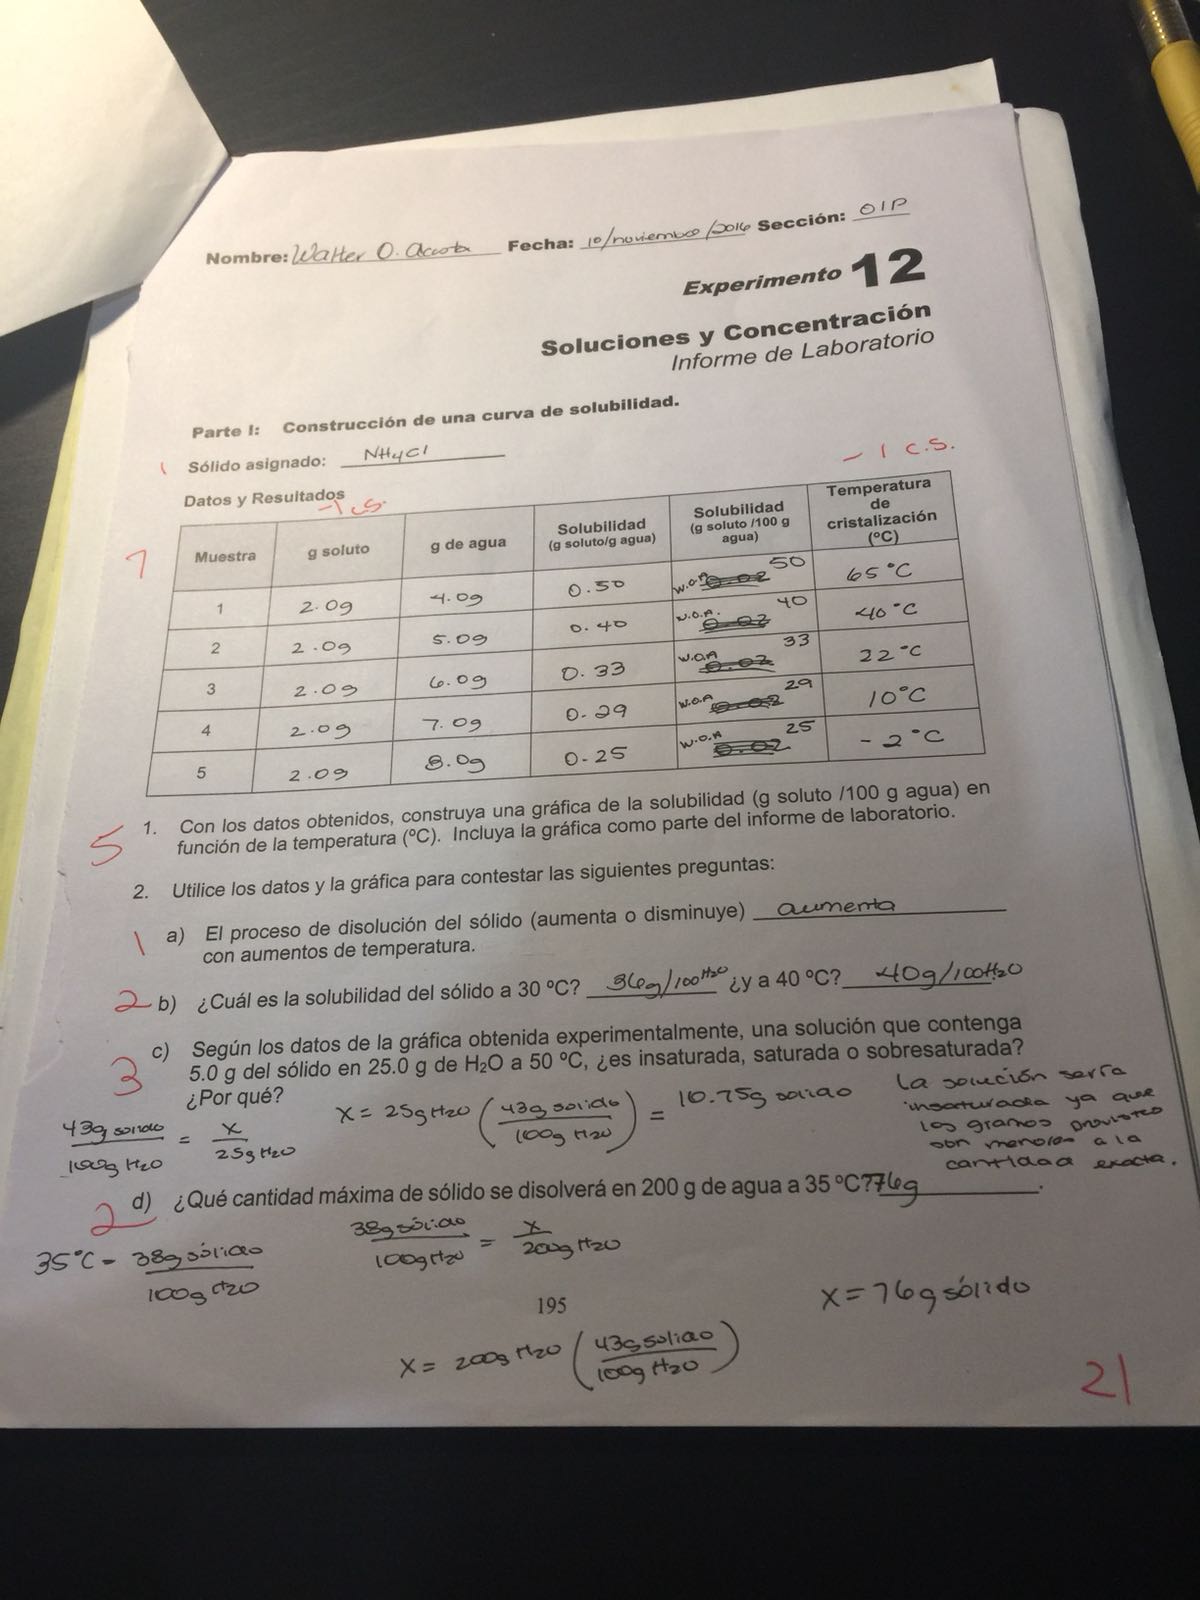 Nombre: Walter O. Acosta Fecha: 10/noviembre/2016 Sección: 01P
Experimento 12
Soluciones y Concentración
Informe de Laboratorio
Parte I: Construcción de una curva de solubilidad.
1 Sólido asignado: NH4Cl
- 1 c.s.
Datos y Resultados
-1 c.s.
7
Muestra g soluto g de agua Solubilidad (g soluto/g agua) Solubilidad (g soluto /100 g agua) Temperatura de cristalización (ºC)
1 2.0g 4.0g 0.50 W.O.A 0.02 50 65 °C
2 2.0g 5.0g 0.40 W.O.A. 0.02 40 40 °C
3 2.0g 6.0g 0.33 W.O.A 0.02 33 22 °C
4 2.0g 7.0g 0.29 W.O.A 0.02 29 10°C
5 2.0g 8.0g 0.25 W.O.A 0.02 25 - 2 °C
5 1. Con los datos obtenidos, construya una gráfica de la solubilidad (g soluto /100 g agua) en
función de la temperatura (ºC). Incluya la gráfica como parte del informe de laboratorio.
2. Utilice los datos y la gráfica para contestar las siguientes preguntas:
1 a) El proceso de disolución del sólido (aumenta o disminuye) aumenta
con aumentos de temperatura.
2 b) ¿Cuál es la solubilidad del sólido a 30 ºC? 36g/100H2O ¿y a 40 ºC? 40g/100H2O.
3 c) Según los datos de la gráfica obtenida experimentalmente, una solución que contenga
5.0 g del sólido en 25.0 g de H2O a 50 ºC, ¿es insaturada, saturada o sobresaturada?
¿Por qué?
43g sólido / 100g H2O = x / 25g H2O
x = 25g H2O (43g sólido / 100g H2O) = 10.75g sólido
La solución sería
insaturada ya que
los gramos provistos
son menores a la
cantidad exacta.
2 d) ¿Qué cantidad máxima de sólido se disolverá en 200 g de agua a 35 ºC? 76g.
35°C = 38g sólido / 100g H2O
38g sólido / 100g H2O = x / 200g H2O
x = 76g sólido
195
x = 200g H2O (43g sólido / 100g H2O)
21